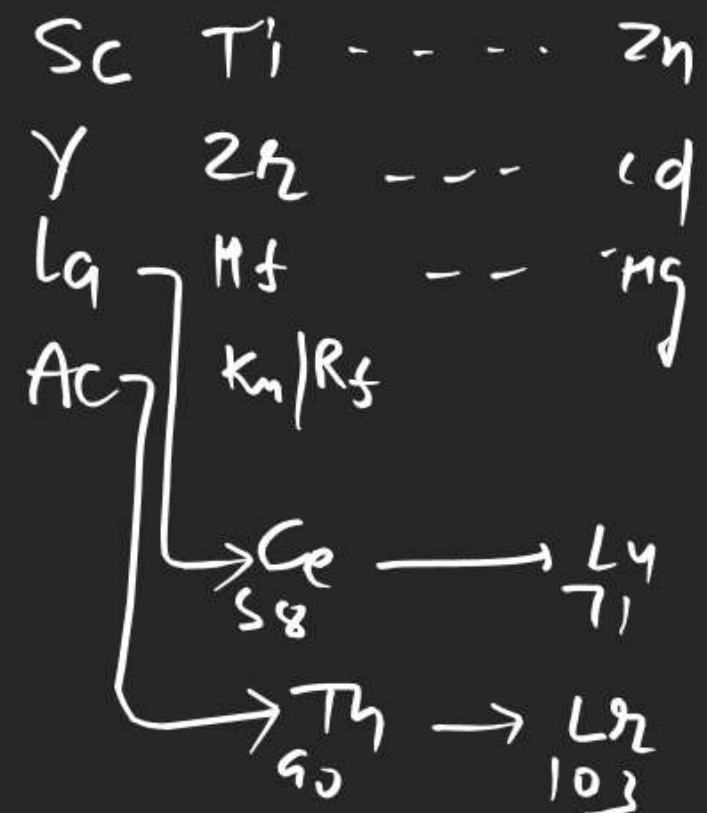 Sc Ti - - - - Zn
Y Zr - - - Cd
La Hf - - Hg
Ac Ku/Rf
Ce → Lu
58 71
Th → Lr
90 103